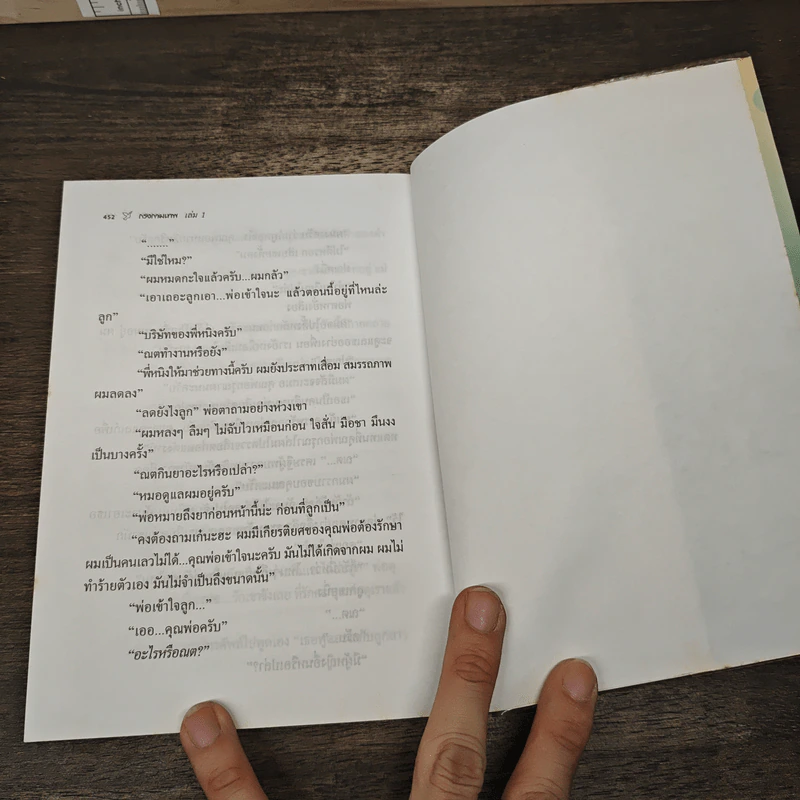 452 กรงกามเทพ เล่ม 1
“.......”
“มีใช่ไหม?”
“ผมหมดกะใจแล้วครับ...ผมกลัว”
“เอาเถอะลูกเอา...พ่อเข้าใจนะ แล้วตอนนี้อยู่ที่ไหนล่ะ
ลูก”
“บริษัทของพี่หนิงครับ”
“ณตทำงานหรือยัง”
“พี่หนิงให้มาช่วยทางนี้ครับ ผมยังประสาทเสื่อม สมรรถภาพ
ผมลดลง”
“ลดยังไงลูก” พ่อตาถามอย่างห่วงเขา
“ผมหลงๆ ลืมๆ ไม่ฉับไวเหมือนก่อน ใจสั่น มือชา มึนงง
เป็นบางครั้ง”
“ณตกินยาอะไรหรือเปล่า?”
“หมอดูแลผมอยู่ครับ”
“พ่อหมายถึงยาก่อนหน้านี้น่ะ ก่อนที่ลูกเป็น”
“คงต้องถามเก๋นะฮะ ผมมีเกียรติยศของคุณพ่อต้องรักษา
ผมเป็นคนเลวไม่ได้...คุณพ่อเข้าใจนะครับ มันไม่ได้เกิดจากผม ผมไม่
ทำร้ายตัวเอง มันไม่จำเป็นถึงขนาดนั้น”
“พ่อเข้าใจลูก...”
“เออ...คุณพ่อครับ”
“อะไรหรือณต?”